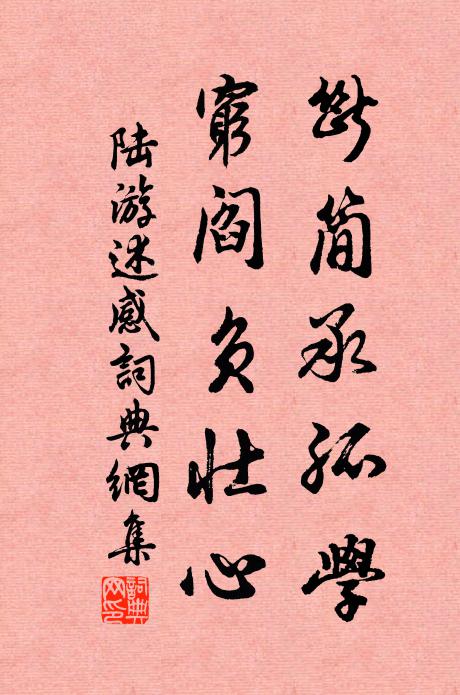 斷簡承孤學
窮閻負壯心
陆游述感詞典網集
詞典网印